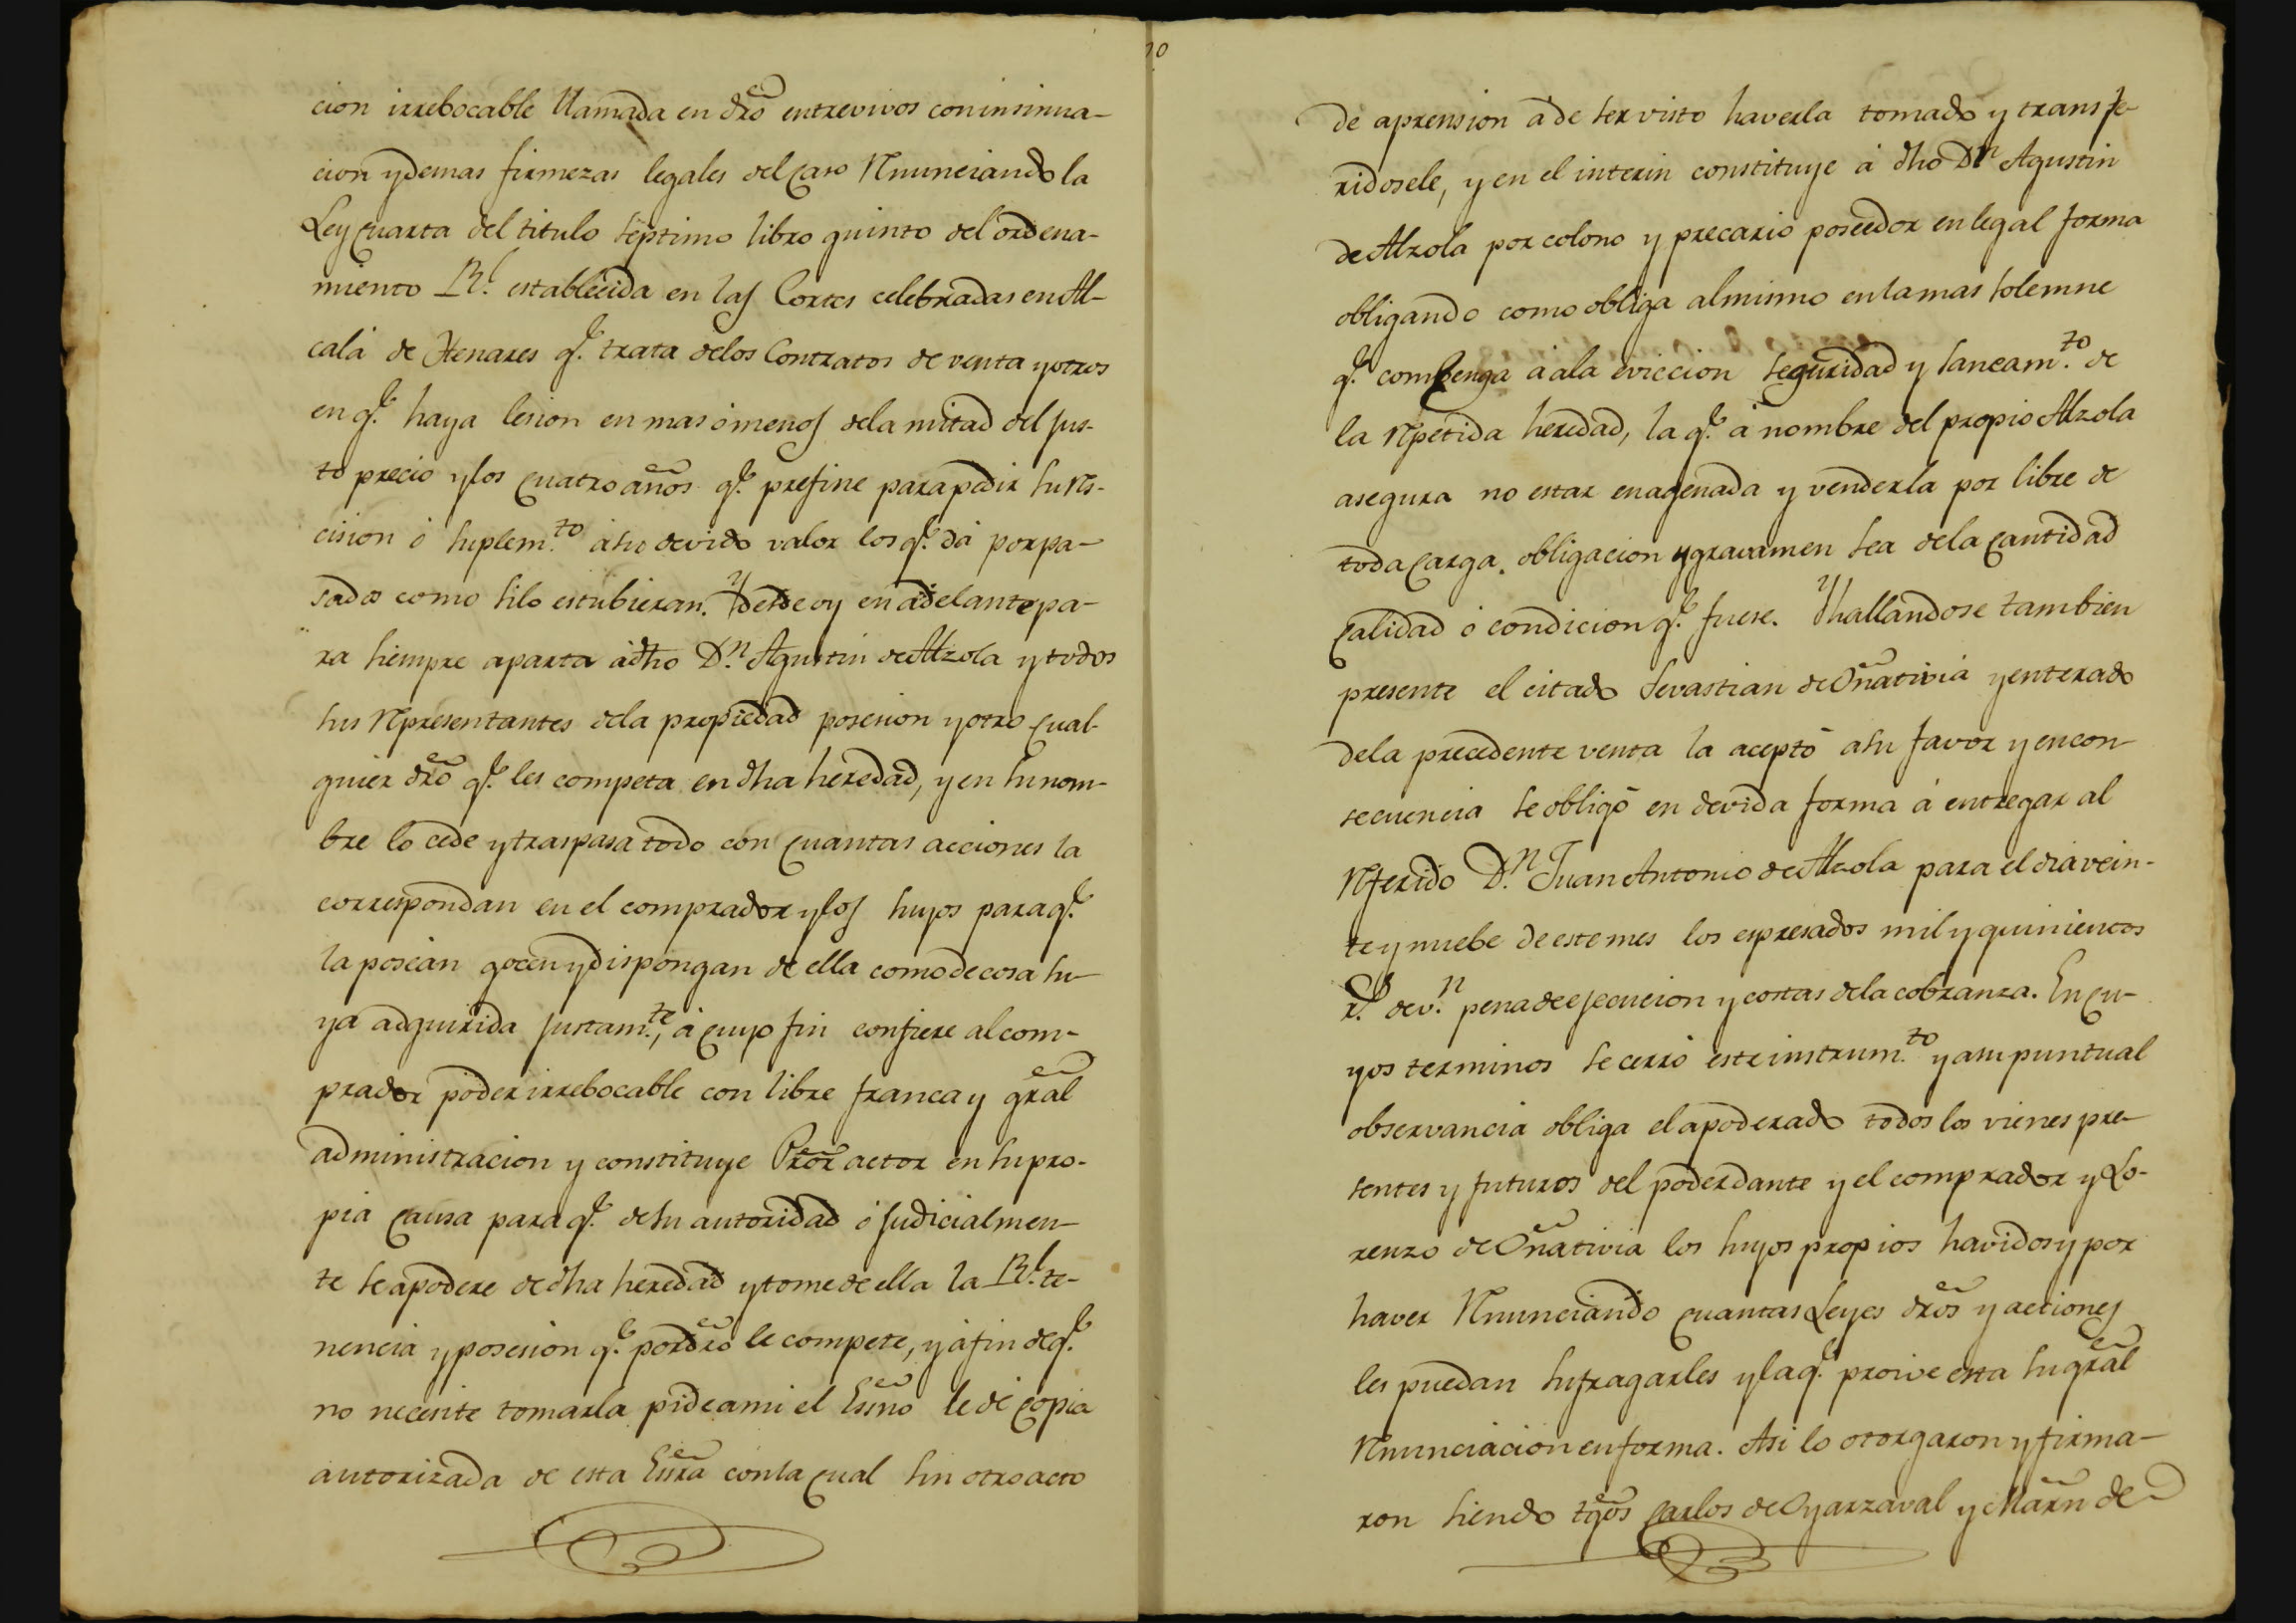 cion irrebocable llamada en dro entrevivos con insinua-
cion y demas firmezas legales del caso Rnunciando la
Ley cuarta del titulo septimo libro quinto del ordena-
miento Rl. establecida en las Cortes celebradas en Al-
calá de Henares qe. trata de los Contratos de venta y otros
en qe. haya lesion en mas ó menos de la mitad del jus-
to precio y los cuatro años qe. prefine para pedir su Rs-
cision ó suplemto. á su devido valor los qe. dá por pa-
sados como si lo estubieran. Y desde oy en adelante pa-
ra siempre aparta á dho Dn. Agustin de Alzola y todos
sus Rpresentantes de la propiedad posesion y otro cual-
quier dro qe. les competa en dha heredad, y en su nom-
bre lo cede y traspasa todo con cuantas acciones la
correspondan en el comprador y los suyos para qe.
la posean gocen y dispongan de ella como de cosa su-
ya adquirida justamte., á cuyo fin confiere al com-
prador poder irrebocable con libre franca y gral
administracion y constituye Pror actor en su pro-
pia causa para qe. de su autoridad ó judicialmen-
te se apodere de dha heredad y tome de ella la Rl. te-
nencia y posesion qe. por dro le compete, y á fin de qe.
no necesite tomarla pide a mi el Essno le dé copia
autorizada de esta Essra con la cual sin otro acto
10
de aprension a de ser visto haverla tomado y transfe-
ridosele, y en el interin constituye á dho Dn Agustin
de Alzola por colono y precario poseedor en legal forma
obligando como obliga al mismo en la mas solemne
qe. combenga á a la eviccion seguridad y saneamto. de
la Rpetida heredad, la qe. á nombre del propio Alzola
asegura no estar enagenada y venderla por libre de
toda carga. obligacion y gravamen sea de la cantidad
calidad ó condicion qe. fuese. Y hallandose tambien
presente el citado Sevastian de Oñativia y enterado
de la precedente venta la aceptó a su favor y en con-
secuencia se obligó en devida forma á entregar al
Rferido Dn. Juan Antonio de Alzola para el dia vein-
te y nuebe de este mes los espresados mil y quinientos
rs. de vn. pena de ejecucion y costas de la cobranza. En cu-
yos terminos se cerró este instrumto. y a su puntual
observancia obliga el apoderado todos los vienes pre-
sentes y futuros del poderdante y el comprador y Lo-
renzo de Oñativia los suyos propios havidos y por
haver Rnunciando cuantas Leyes dros y actiones
les puedan sufragarles y la qe. proive esta su gral
Rnunciacion en forma. Asi lo otorgaron y firma-
ron siendo tgos Carlos de Oyarzaval y Marn de